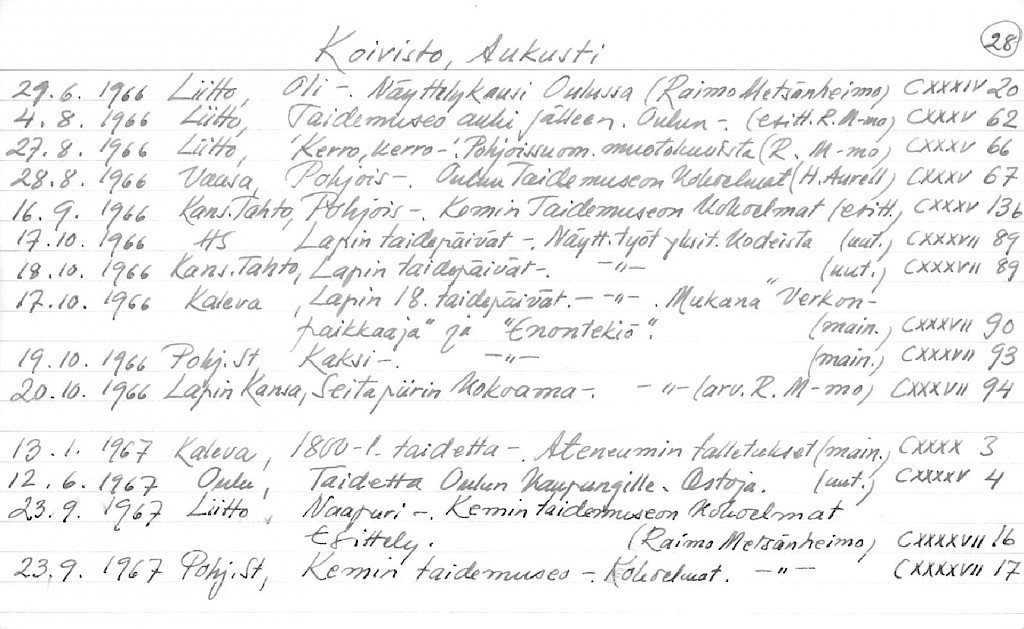 28
Koivisto, Aukusti
29.6. 1966 Liitto, Oli -. Näyttelykausi Oulussa (Raimo Metsänheimo) CXXXIV 20
4.8. 1966 Liitto, Taidemuseo auki jälleen. Oulun -. (esitt. R. M-mo) CXXXV 62
27.8. 1966 Liitto, 'Kerro, kerro -'. Pohjoissuom. muotokuvista (R. M-mo) CXXXV 66
28.8. 1966 Vaasa, Pohjois -. Oulun Taidemuseon kokoelmat (H. Aurell) CXXXV 67
16.9. 1966 Kans. Tahto, Pohjois -. Kemin Taidemuseon kokoelmat (esitt.) CXXXV 136
17.10. 1966 HS Lapin taidepäivät -. Näytt. työt yksit. kodeista (uut.) CXXXVII 89
18.10. 1966 Kans. Tahto, Lapin taidepäivät -. -"- (uut.) CXXXVII 89
17.10. 1966 Kaleva, Lapin 18. taidepäivät. - -"- . Mukana "Verkon-
paikkaaja" ja "Enontekiö". (main.) CXXXVII 90
19.10. 1966 Pohj. St Kaksi -. -"- (main.) CXXXVII 93
20.10. 1966 Lapin Kansa, Seitapiirin kokoama -. -"- (arv. R. M-mo) CXXXVII 94
13.1. 1967 Kaleva, 1800-l. taidetta -. Ateneumin talletukset (main.) CXXXX 3
12.6. 1967 Oulu, Taidetta Oulun kaupungille. Ostoja. (uut.) CXXXXV 4
23.9. 1967 Liitto, Naapuri -. Kemin taidemuseon kokoelmat
Esittely. (Raimo Metsänheimo) CXXXXVII 16
23.9. 1967 Pohj. St, Kemin taidemuseo -. Kokoelmat. -"- CXXXXVII 17